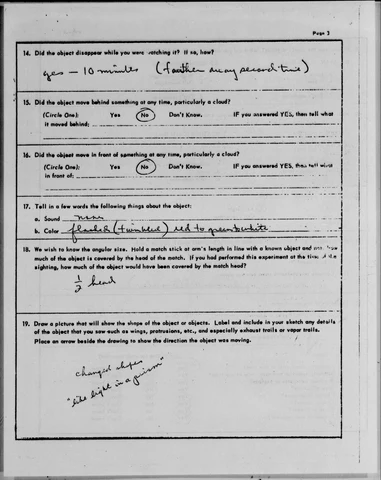 Page 3
14. Did the object disappear while you were watching it? If so, how?
yes — 10 minutes (farther away second time)
15. Did the object move behind something at any time, particularly a cloud?
(Circle One): Yes No Don't Know. IF you answered YES, then tell what
it moved behind:
16. Did the object move in front of something at any time, particularly a cloud?
(Circle One): Yes No Don't Know. IF you answered YES, then tell what
in front of:
17. Tell in a few words the following things about the object:
a. Sound none
b. Color flashed (twinkled) red to green to white
18. We wish to know the angular size. Hold a match stick at arm's length in line with a known object and note how
much of the object is covered by the head of the match. If you had performed this experiment at the time of the
sighting, how much of the object would have been covered by the match head?
1/2 head
19. Draw a picture that will show the shape of the object or objects. Label and include in your sketch any details
of the object that you saw such as wings, protrusions, etc., and especially exhaust trails or vapor trails.
Place an arrow beside the drawing to show the direction the object was moving.
changed shapes
"like light in a prism"